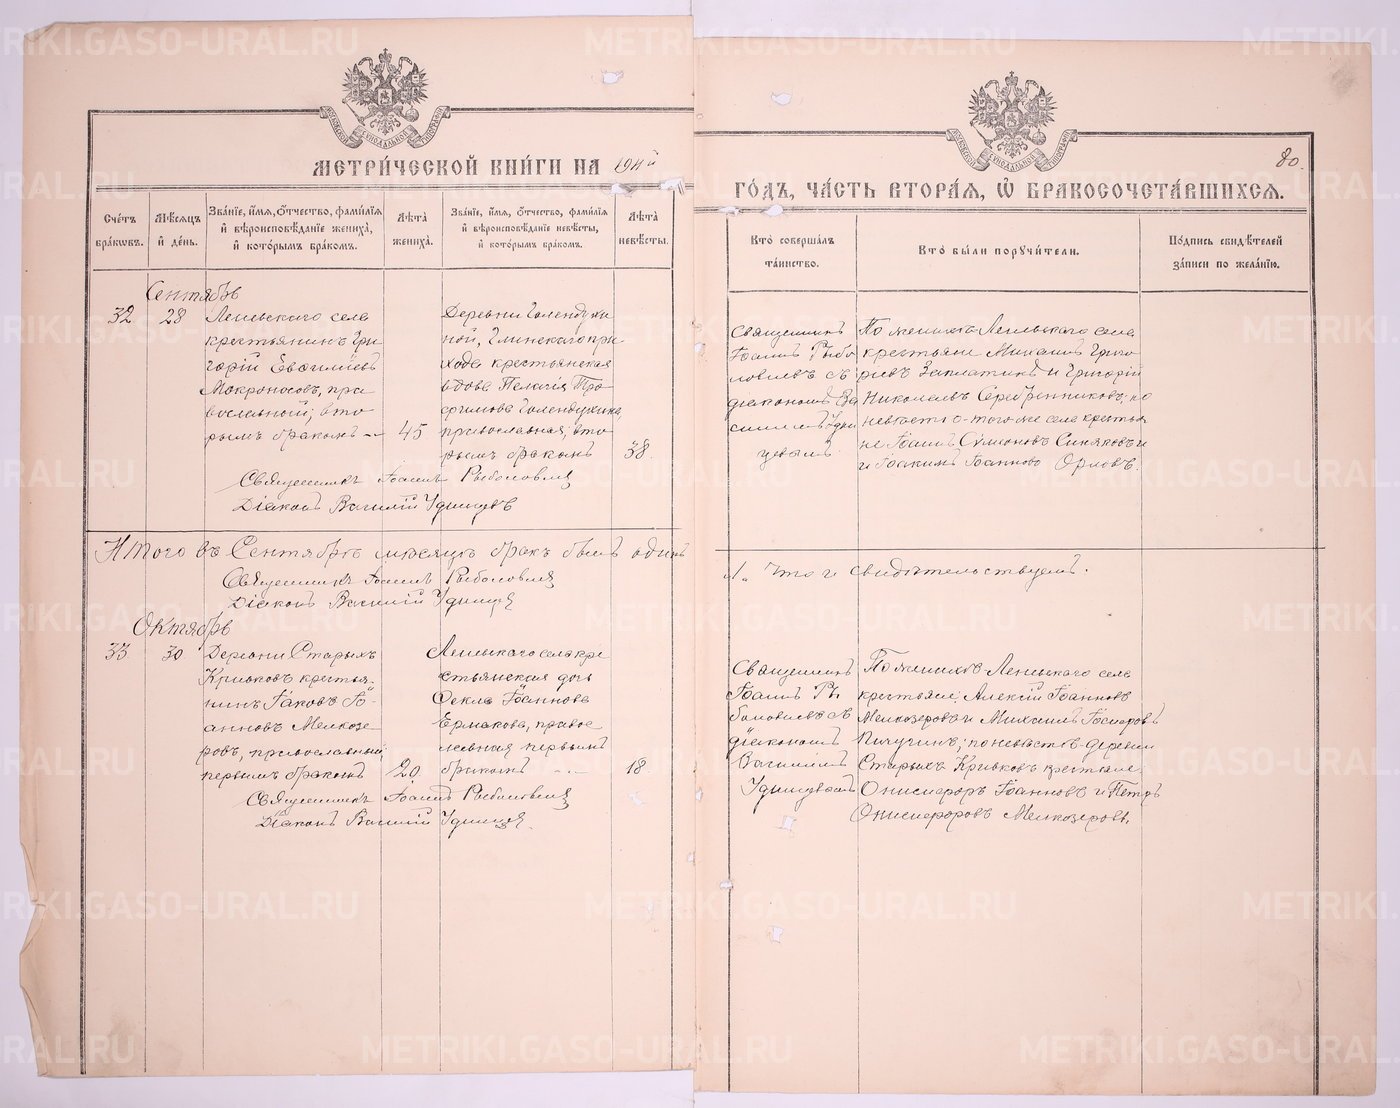 МЕТРИ́ЧЕСКОЙ КНИ́ГИ НА 1911й
ГО́ДЪ, ЧА́СТЬ ВТОРА́Я, Ѽ БРАКОСОЧЕТА́ВШИХСЯ.
80.
Сче́тъ бра́ковъ.
Мѣ́сяцъ и́ де́нь.
Зва́нїе, и́мя, о́тчество, фами́лїя и́ вѣроисповѣ́данїе жениха́, и́ кото́рымъ бра́комъ.
Лѣта̀ жениха́.
Зва́нїе, и́мя, о́тчество, фами́лїя и́ вѣроисповѣ́данїе невѣ́сты, и́ кото́рымъ бра́комъ.
Лѣта̀ невѣ́сты.
Кто̀ соверша́лъ та́инство.
Кто̀ бы́ли порꙋчи́тели.
По́дпись свидѣ́телей за́писи по жела́нїю.
Сентябрь
32
28
Леневскаго села
крестьянинъ Гри
горій Евогліевъ
Мокроносовъ, пра
вославный, вто
рымъ бракомъ
45
Деревни Голендухи
ной, Глинскаго при
хода крестьянская
вдова Пелагія Тро
фимова Голендухина,
православная, вто
рымъ бракомъ
38.
Священникъ
Іоаннъ Рыбо
ловлевъ съ
діакономъ Ва
силіемъ Удин
цевымъ.
По женихѣ Леневскаго села
крестьяне Михаилъ Григо
рьевъ Заплатинъ и Григорій
Николаевъ Серебренниковъ; по
невѣстѣ того же села крестья
не Іоаннъ Симоновъ Синяковъ и
и Іоакимъ Іоанновъ Орловъ.
Священникъ Іоаннъ Рыболовлевъ
Діаконъ Василій Удинцевъ
Итого въ Сентябрѣ мѣсяцѣ бракъ былъ одинъ
1. Что и свидѣтельствуемъ.
Священникъ Іоаннъ Рыболовлевъ
Діаконъ Василій Удинцевъ
Октябрь
33
30
Деревни Старыхъ
Кривковъ крестья-
нинъ Іаковъ Іо-
анновъ Мелкозе
ровъ, православный,
первымъ бракомъ
20.
Леневскаго села кре
стьянская дочь
Ѳекла Іоаннова
Ермакова, право
славная первымъ
бракомъ
18.
Священникъ
Іоаннъ Ры
боловлевъ съ
діакономъ
Василіемъ
Удинцевымъ
По женихѣ Леневскаго села
крестьяне: Алексій Іоанновъ
Мелкозеровъ и Михаилъ
Пичугинъ; по невѣстѣ деревни
Старыхъ Кривковъ крестьяне:
Онисифоръ Іоанновъ и Петръ
Онисифоровъ Мелкозеровы.
Священникъ Іоаннъ Рыболовлевъ
Діаконъ Василій Удинцевъ.
METRIKI.GASO-URAL.RU